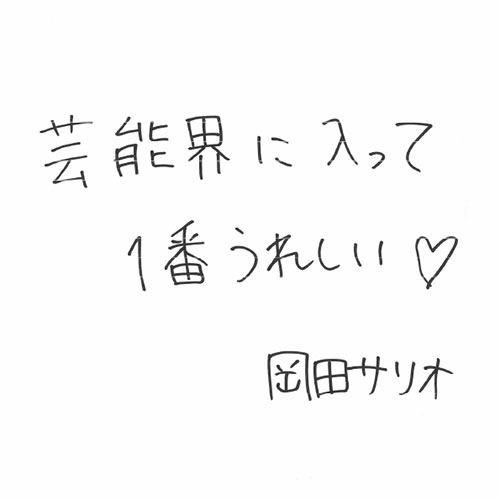 芸能界に入って
1番うれしい♡
岡田サリオ